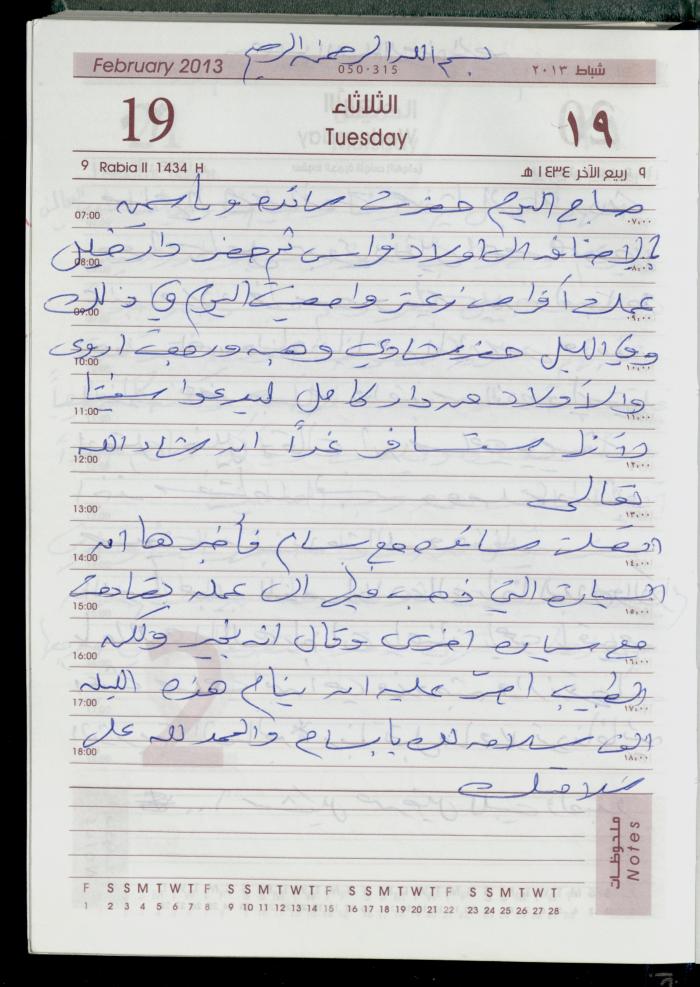 بسم الله الرحمن الرحيم
February 2013 050-315 شباط ٢٠١٣
19 الثلاثاء ١٩
Tuesday
9 Rabia II 1434 H ٩ ربيع الآخر ١٤٣٤ هـ
صباح اليوم حضرت سائده وياسمين
07:00 ٠٧:٠٠
بالاضافه الى اولاد فراس ثم حضر دار
08:00 ٠٨:٠٥
عملت أقراص زعتر وامضيت اليوم في ذلك
09:00 ٠٩:٠٠
وفي الليل حضر شادي وهبه ورجب اروى
10:00 ١٠:٠٠
والأولاد من دار كامل ليدعوا
11:00 ١١:٠٠
ستسافر غداً ان شاء الله
12:00 ١٢:٠٠
تعالى
13:00 ١٣:٠٠
اتصلت سائده مع بسام فأخبرها ان
14:00 ١٤:٠٠
السيارة التي ذهب فيها الى عمله تصادمت
15:00 ١٥:٠٠
مع سياره اخرى وقال انه بخير ولكن
16:00 ١٦:٠٠
الطبيب اصرّ عليه ان ينام هذه الليله
17:00 ١٧:٠٠
الف سلامه لك يا بسام والحمد لله على
18:00 ١٨:٠٠
سلامتك
ملحوظات
Notes
F S S M T W T F S S M T W T F S S M T W T F S S M T W T
1 2 3 4 5 6 7 8 9 10 11 12 13 14 15 16 17 18 19 20 21 22 23 24 25 26 27 28